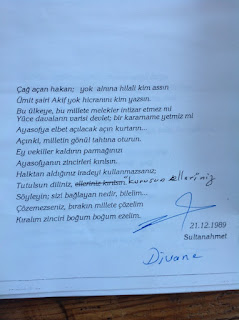 Çağ açan hakan; yok alnına hilali kim assın
Ümit şairi Akif yok hicranını kim yazsın.
Bu ülkeye, bu millete melekler intizar etmez mi
Yüce davaların partisi devlet; bir kararname yetmiz mi
Ayasofya elbet açılacak açın kurtarın...
Açınki, milletin gönül tahtına oturun.
Ey vekiller kaldırın parmağınızı
Ayasofyanın zincirleri kırılsın.
Halktan aldığınız iradeyi kullanmazsanız;
Tutulsun diliniz, elleriniz kırılsın. Kurusun Elleriniz
Söyleyin; sizi bağlayan nedir, bilelim...
Çözemezseniz, bırakın millete çözelim
Kıralım zinciri boğum boğum ezelim.
21.12.1989
Sultanahmet
Divane